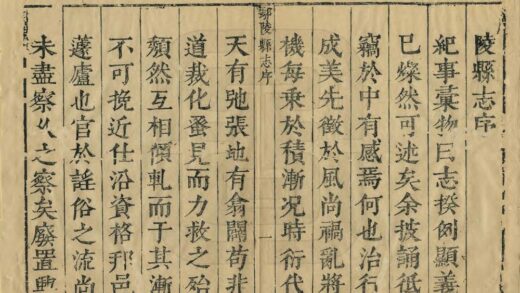 陵縣志序
紀事彙物曰志揆例顯義
已燦然可述矣余披誦低
竊於中有感焉何也治行
成美先徵於風尚禍亂將
機每乗於積漸况時衍代
鄢陵縣志序
一
天有弛張地有翕闢苟非
道裁化蚤見而力救之殆
頹然互相傾軋而于其漸
不可挽近仕沿資格邦邑
蘧廬也官於謠俗之流尚
未盡察矣廢置興